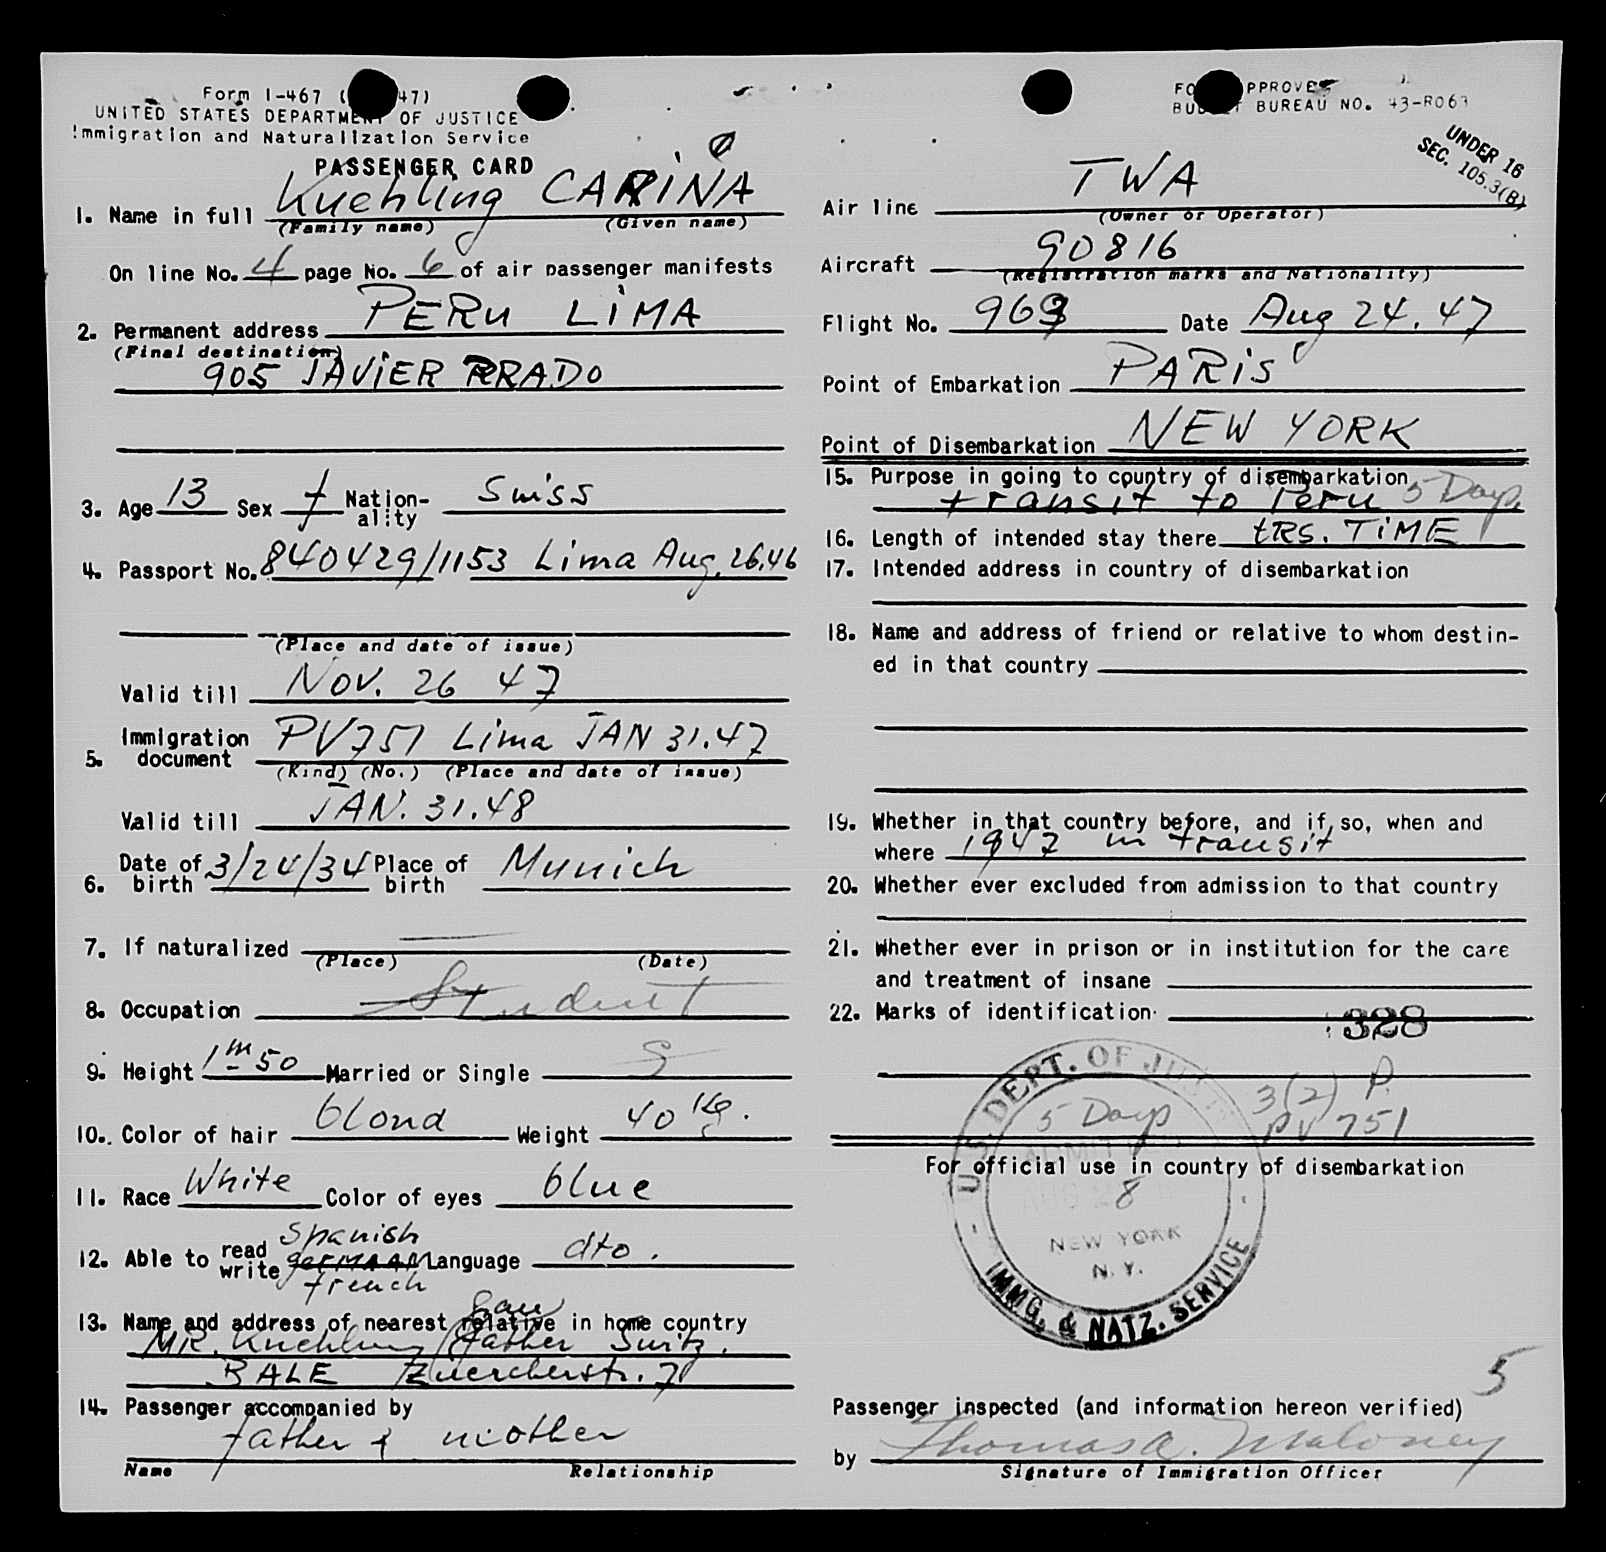 Form I-467 ( 47)
UNITED STATES DEPARTMENT OF JUSTICE
Immigration and Naturalization Service
PASSENGER CARD
1. Name in full Kuehling CARINA
(Family name) (Given name)
On line No. 4 page No. 6 of air passenger manifests
2. Permanent address PERU LIMA
(Final destination)
905 JAVIER PRADO
3. Age 13 Sex f Nation-ality Swiss
4. Passport No. 840429/1153 Lima Aug. 26.46
(Place and date of issue)
Valid till Nov. 26 47
5. Immigration document PV751 Lima JAN 31.47
(Kind) (No.) (Place and date of issue)
Valid till JAN. 31.48
6. Date of birth 3/24/34 Place of birth Munich
7. If naturalized —
(Place) (Date)
8. Occupation Student
9. Height 1m50 Married or Single S
10. Color of hair blond Weight 40 Kg.
11. Race White Color of eyes blue
12. Able to read write Spanish german french Language dto.
13. Name and address of nearest relative in home country
MR. Kuehling father Switz.
BALE Zuercherstr. 7
14. Passenger accompanied by
father & mother
Name Relationship
FORM APPROVED
BUDGET BUREAU NO. 43-R063
UNDER 16
SEC. 105.3(B)
Air line TWA
(Owner or Operator)
Aircraft 90816
(Registration marks and Nationality)
Flight No. 963 Date Aug 24.47
Point of Embarkation PARIS
Point of Disembarkation NEW YORK
15. Purpose in going to country of disembarkation
transit to Peru 5 Days
16. Length of intended stay there tRS. TIME
17. Intended address in country of disembarkation
18. Name and address of friend or relative to whom destin-
ed in that country
19. Whether in that country before, and if so, when and
where 1947 in transit
20. Whether ever excluded from admission to that country
21. Whether ever in prison or in institution for the care
and treatment of insane
22. Marks of identification
328
3(2) P.
PV 751
5 Days
For official use in country of disembarkation
U.S. DEPT. OF JUSTICE
ADMITTED
AUG
8
NEW YORK
N.Y.
IMMG. & NATZ. SERVICE
5
Passenger inspected (and information hereon verified)
by Thomas A. Maloney
Signature of Immigration Officer